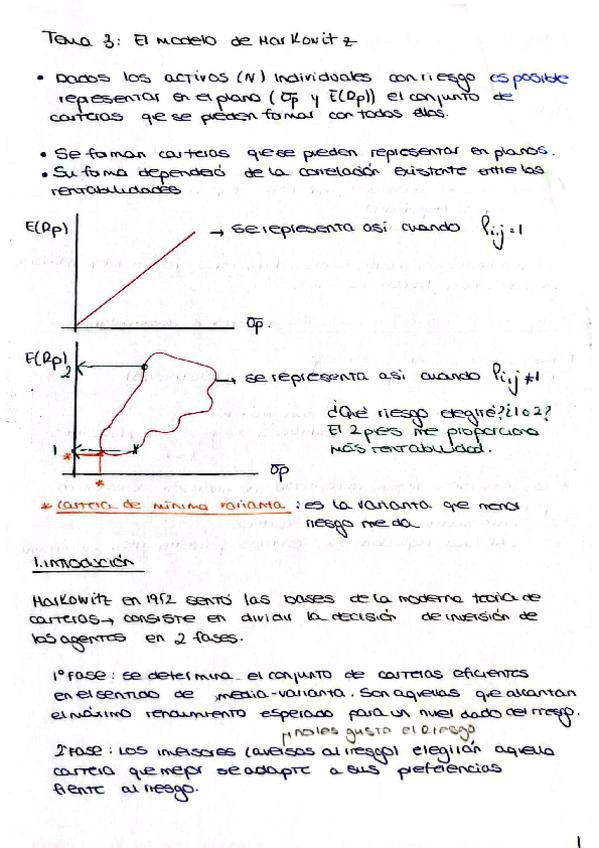 Tema 3: El modelo de Markowitz
• Dados los activos (N) individuales con riesgo es posible
representar en el plano (σp y E(Rp)) el conjunto de
carteras que se pueden formar con todos ellos.
• Se forman carteras que se pueden representar en planos.
• Su forma dependerá de la correlación existente entre las
rentabilidades
E(Rp)
→ se representa así cuando ρi,j = 1
σp
E(Rp)
2
→ se representa así cuando ρi,j ≠ 1
¿Qué riesgo elegiré? ¿1 o 2?
El 2 pues me proporciona
más rentabilidad.
1
*
*
σp
* cartera de mínima varianza : es la varianza que menor
riesgo me da
1. INTRODUCIÓN
Markowitz en 1952 sentó las bases de la moderna teoría de
carteras → consiste en dividir la decisión de inversión de
los agentes en 2 fases.
1º Fase: se determina el conjunto de carteras eficientes
en el sentido de media-varianza. Son aquellas que alcanzan
el máximo rendimiento esperado para un nivel dado del riesgo.
no les gusta el riesgo
2º Fase: Los inversores (aversos al riesgo) elegirán aquella
cartera que mejor se adapte a sus preferencias
frente al riesgo.
1